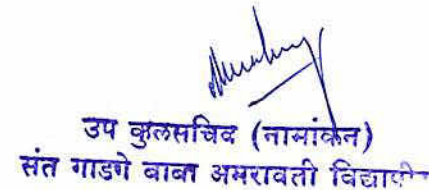 उप कुलसचिव (नामांकन)
संत गाडगे बाबा अमरावती